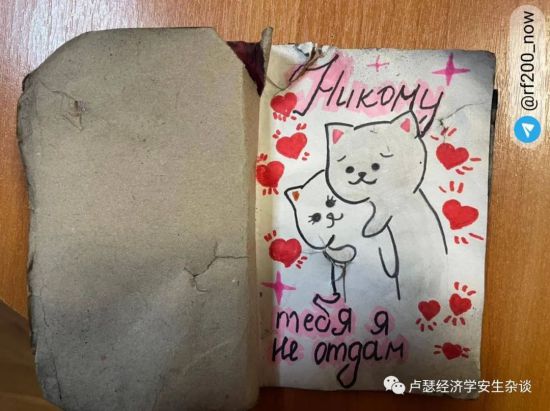 Никому
тебя я
не отдам
@rf200_now
卢瑟经济学安生杂谈